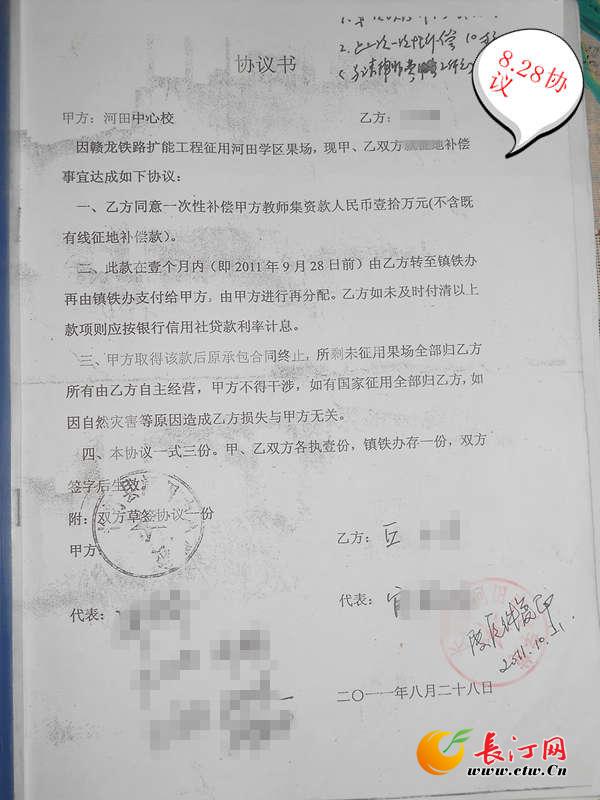 2.
8.28协
议
协议书
甲方：河田中心校
乙方：
因赣龙铁路扩能工程征用河田学区果场，现甲、乙双方就征地补偿
事宜达成如下协议：
一、乙方同意一次性补偿甲方教师集资款人民币壹拾万元(不含既
有线征地补偿款)。
二、此款在壹个月内（即 2011 年 9 月 28 日前）由乙方转至镇铁办
再由镇铁办支付给甲方，由甲方进行再分配。乙方如未及时付清以上
款项则应按银行信用社贷款利率计息。
三、甲方取得该款后原承包合同终止，所剩未征用果场全部归乙方
所有由乙方自主经营，甲方不得干涉，如有国家征用全部归乙方，如
因自然灾害等原因造成乙方损失与甲方无关。
四、本协议一式三份。甲、乙双方各执壹份，镇铁办存一份，双方
签字后生效。
附：双方草签协议一份
甲方
乙方：
代表：
代表：
2011.10.21.
二〇一一年八月二十八日
长汀网
www.ctw.Cn